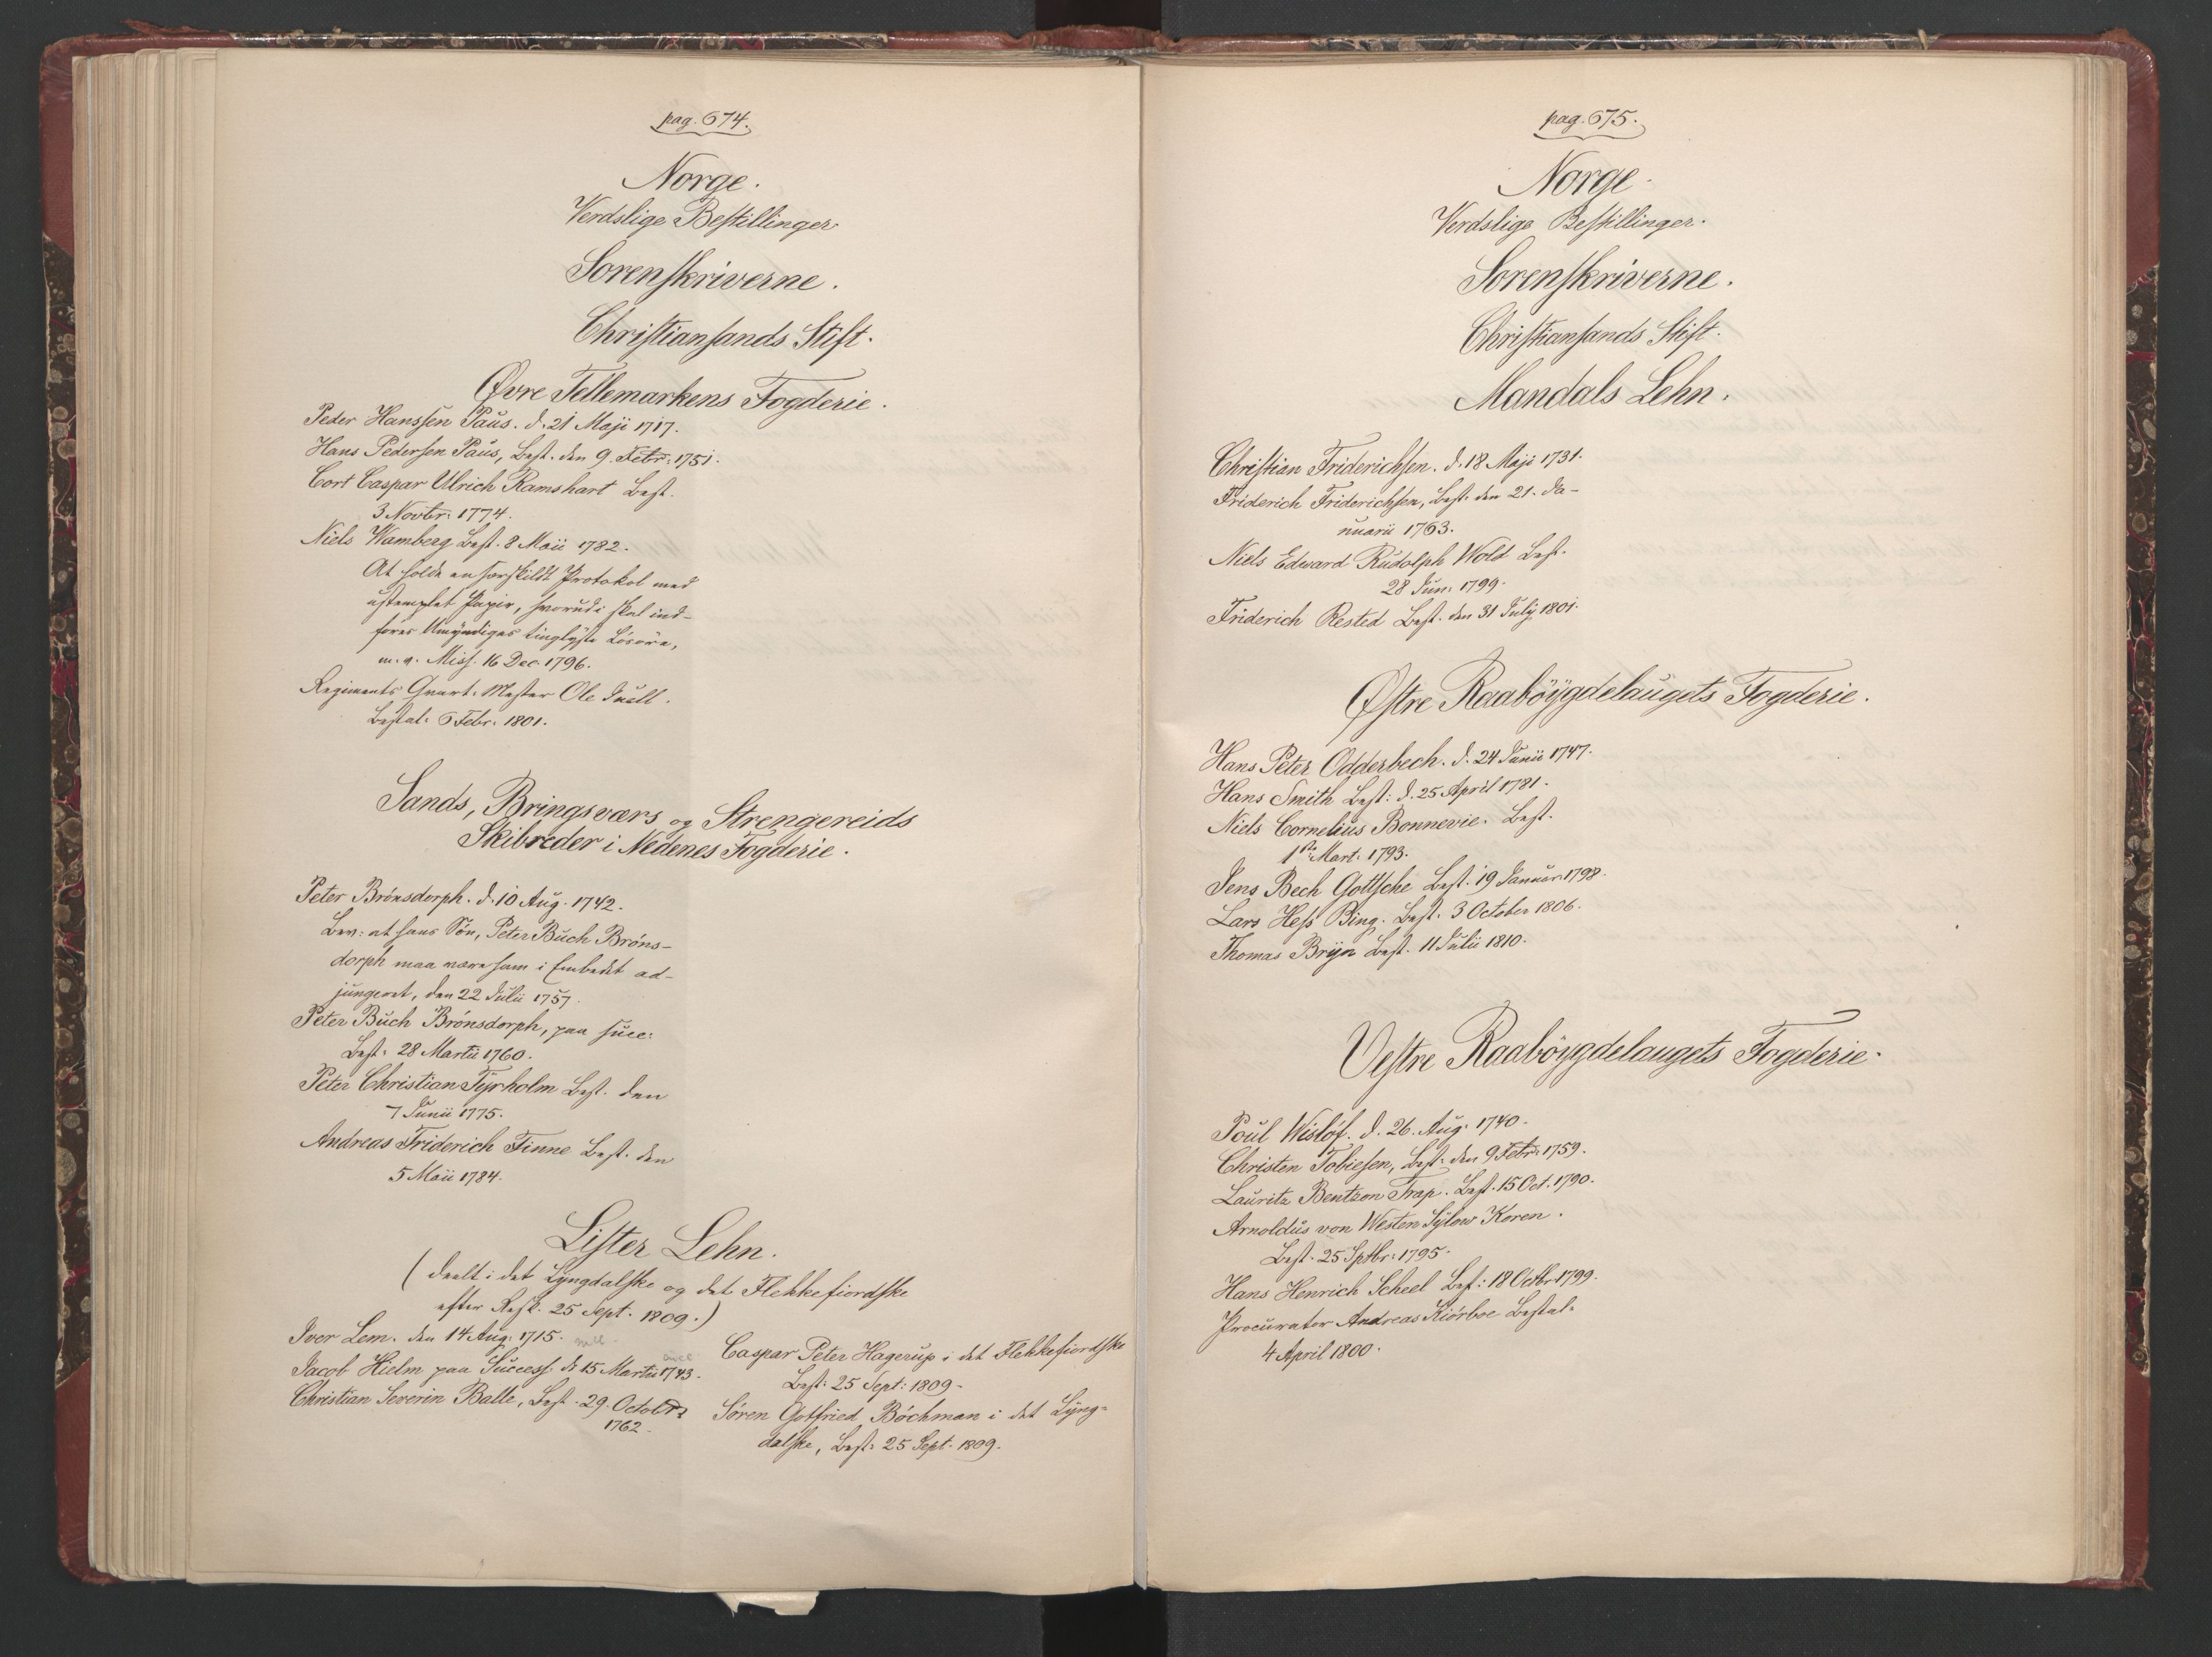 pag. 674.
Norge.
Verdslige Bestillinger.
Sorenskriverne.
Christiansands Stift.
Øvre Tellemarkens Fogderie.
Peder Hanssen Paus. d. 21 Maji 1717.
Hans Pedersen Paus, Best. den 9. Febr: 1751.
Cort Caspar Ulrich Ramshart Best.
3 Novbr: 1774.
Niels Wamberg Best. 8 Maii 1782.
At holde en særskildt Protokol med
ustemplet Papir, hvorudi skal ind-
føres Umyndiges tinglyste Løsøre,
m. v. Miss. 16 Dec. 1796.
Regiments Qvart: Mester Ole Juell.
Bestal: 6 Febr: 1801.
Sands, Bringsværs og Strengereids
Skibreder i Nedenes Fogderie.
Peter Brönsdorph. d. 10 Aug. 1742.
Bev: at hans Sön, Peter Buch Bröns-
dorph maa være ham i Embedet ad-
jungeret, den 22 Julii 1757.
Peter Buch Brönsdorph, paa succ:
Best: 28 Martii 1760.
Peter Christian Tyrholm Best. den
7 Junii 1775.
Andreas Friderich Finne Best. den
5 Maii 1784.
Lister Lehn.
(deelt i det Lyngdalske og det Flekkefiordske
efter Resk. 25 Sept. 1809.)
Iver Lem. den 14 Aug: 1715.
Jacob Hielm paa Success. d: 15 Martii 1743.
Christian Severin Balle, Best. 29. Octobr:
1762.
Caspar Peter Hagerup i det Flekkefiordske
Best: 25 Sept: 1809.
Søren Gotfried Böchman i det Lyng=
dalske, Best: 25 Sept. 1809.
pag. 675.
Norge.
Verdslige Bestillinger.
Sorenskriverne.
Christiansands Stift.
Mandals Lehn.
Christian Friderichsen. d. 18 Maji 1731.
Friderich Friderichsen, Best: den 21. Ja-
nuarii 1763.
Niels Edward Rudolph Wold Best.
28 Jun: 1799.
Friderich Rested Best. den 31 July 1801.
Østre Raabøygdelaugets Fogderie.
Hans Peter Odderbech. d. 24 Junii 1747.
Hans Smith Best: d. 25 April 1781.
Niels Cornelius Bonnevie. Best.
1ste Mart: 1793.
Jens Bech Gottsche Best. 19 Januar: 1798.
Lars Hess Bing. Best. 3 October 1806.
Thomas Bryn Best. 11 Julii 1810.
Vestre Raabøygdelaugets Fogderie.
Poul Wislöf. d. 26. Aug: 1740.
Christen Tobiesen, Best. den 9 Febr: 1759.
Lauritz Bentzon Trap. Best. 15 Oct. 1790.
Arnoldus von Westen Sylow Koren.
Best. 25 Sptbr: 1795.
Hans Henrich Scheel Best: 18 Octbr 1799.
Procurator Andreas Kiörboe Bestal=
4 April 1800.